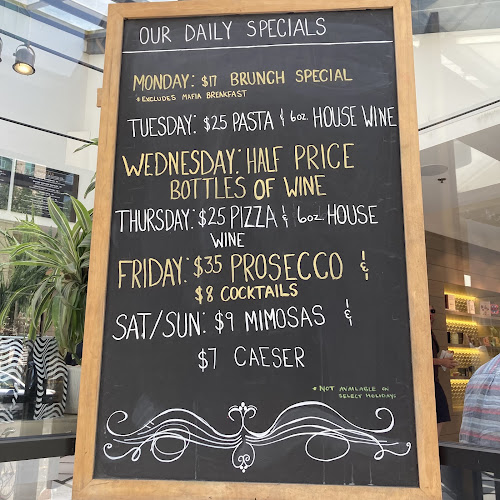 OUR DAILY SPECIALS
MONDAY: $17 BRUNCH SPECIAL
*EXCLUDES MAFIA BREAKFAST
TUESDAY: $25 PASTA & 6oz. HOUSE WINE
WEDNESDAY: HALF PRICE
BOTTLES OF WINE
THURSDAY: $25 PIZZA & 6oz HOUSE
WINE
FRIDAY: $35 PROSECCO &
$8 COCKTAILS
SAT/SUN: $9 MIMOSAS &
$7 CAESER
*NOT AVAILABLE ON
SELECT HOLIDAYS